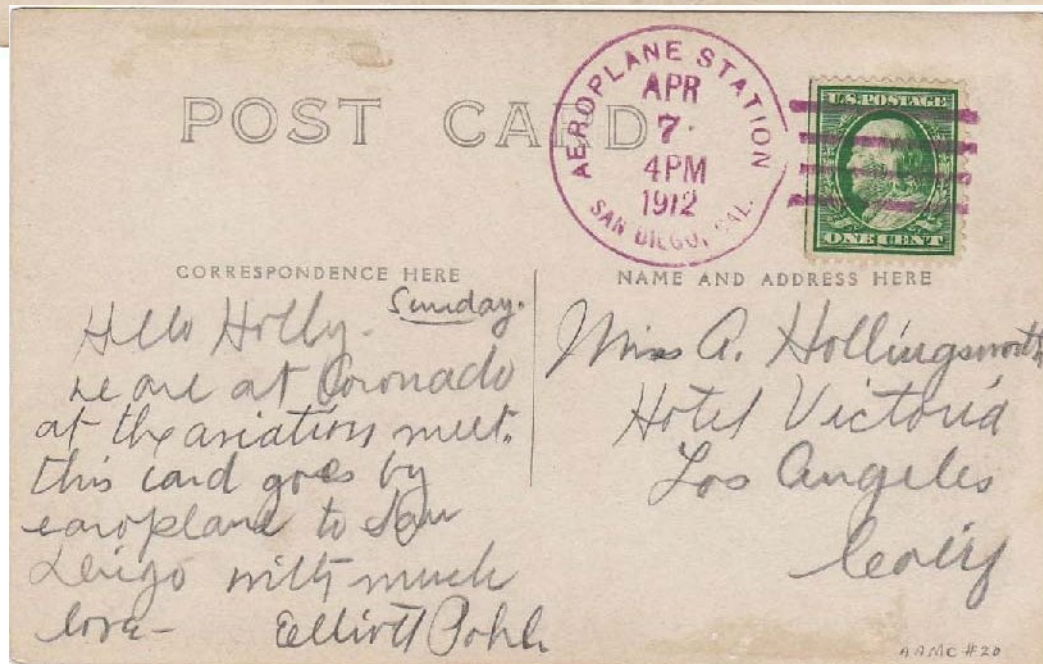 POST CARD
AEROPLANE STATION
APR
7
4PM
1912
SAN DIEGO, CAL.
U.S. POSTAGE
ONE CENT
CORRESPONDENCE HERE
Sunday.
Hello Holly-
we are at Coronado
at the aviation meet.
this card goes by
earoplane to San
Deigo with much
love-
Elliott Pohl
NAME AND ADDRESS HERE
Miss A. Hollingsworth
Hotel Victoria
Los Angeles
AAMC #20